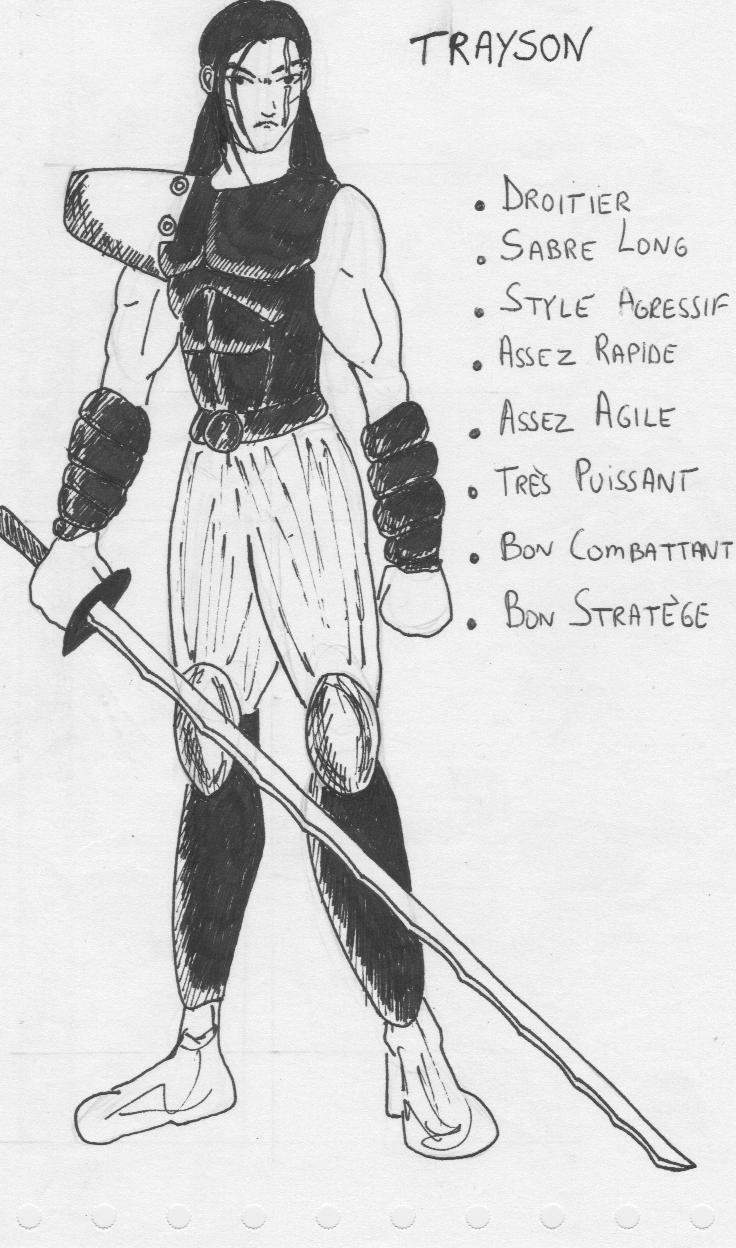 TRAYSON
• DROITIER
• SABRE LONG
• STYLE AGRESSIF
• ASSEZ RAPIDE
• ASSEZ AGILE
• TRÈS PUISSANT
• BON COMBATTANT
• BON STRATÈGE